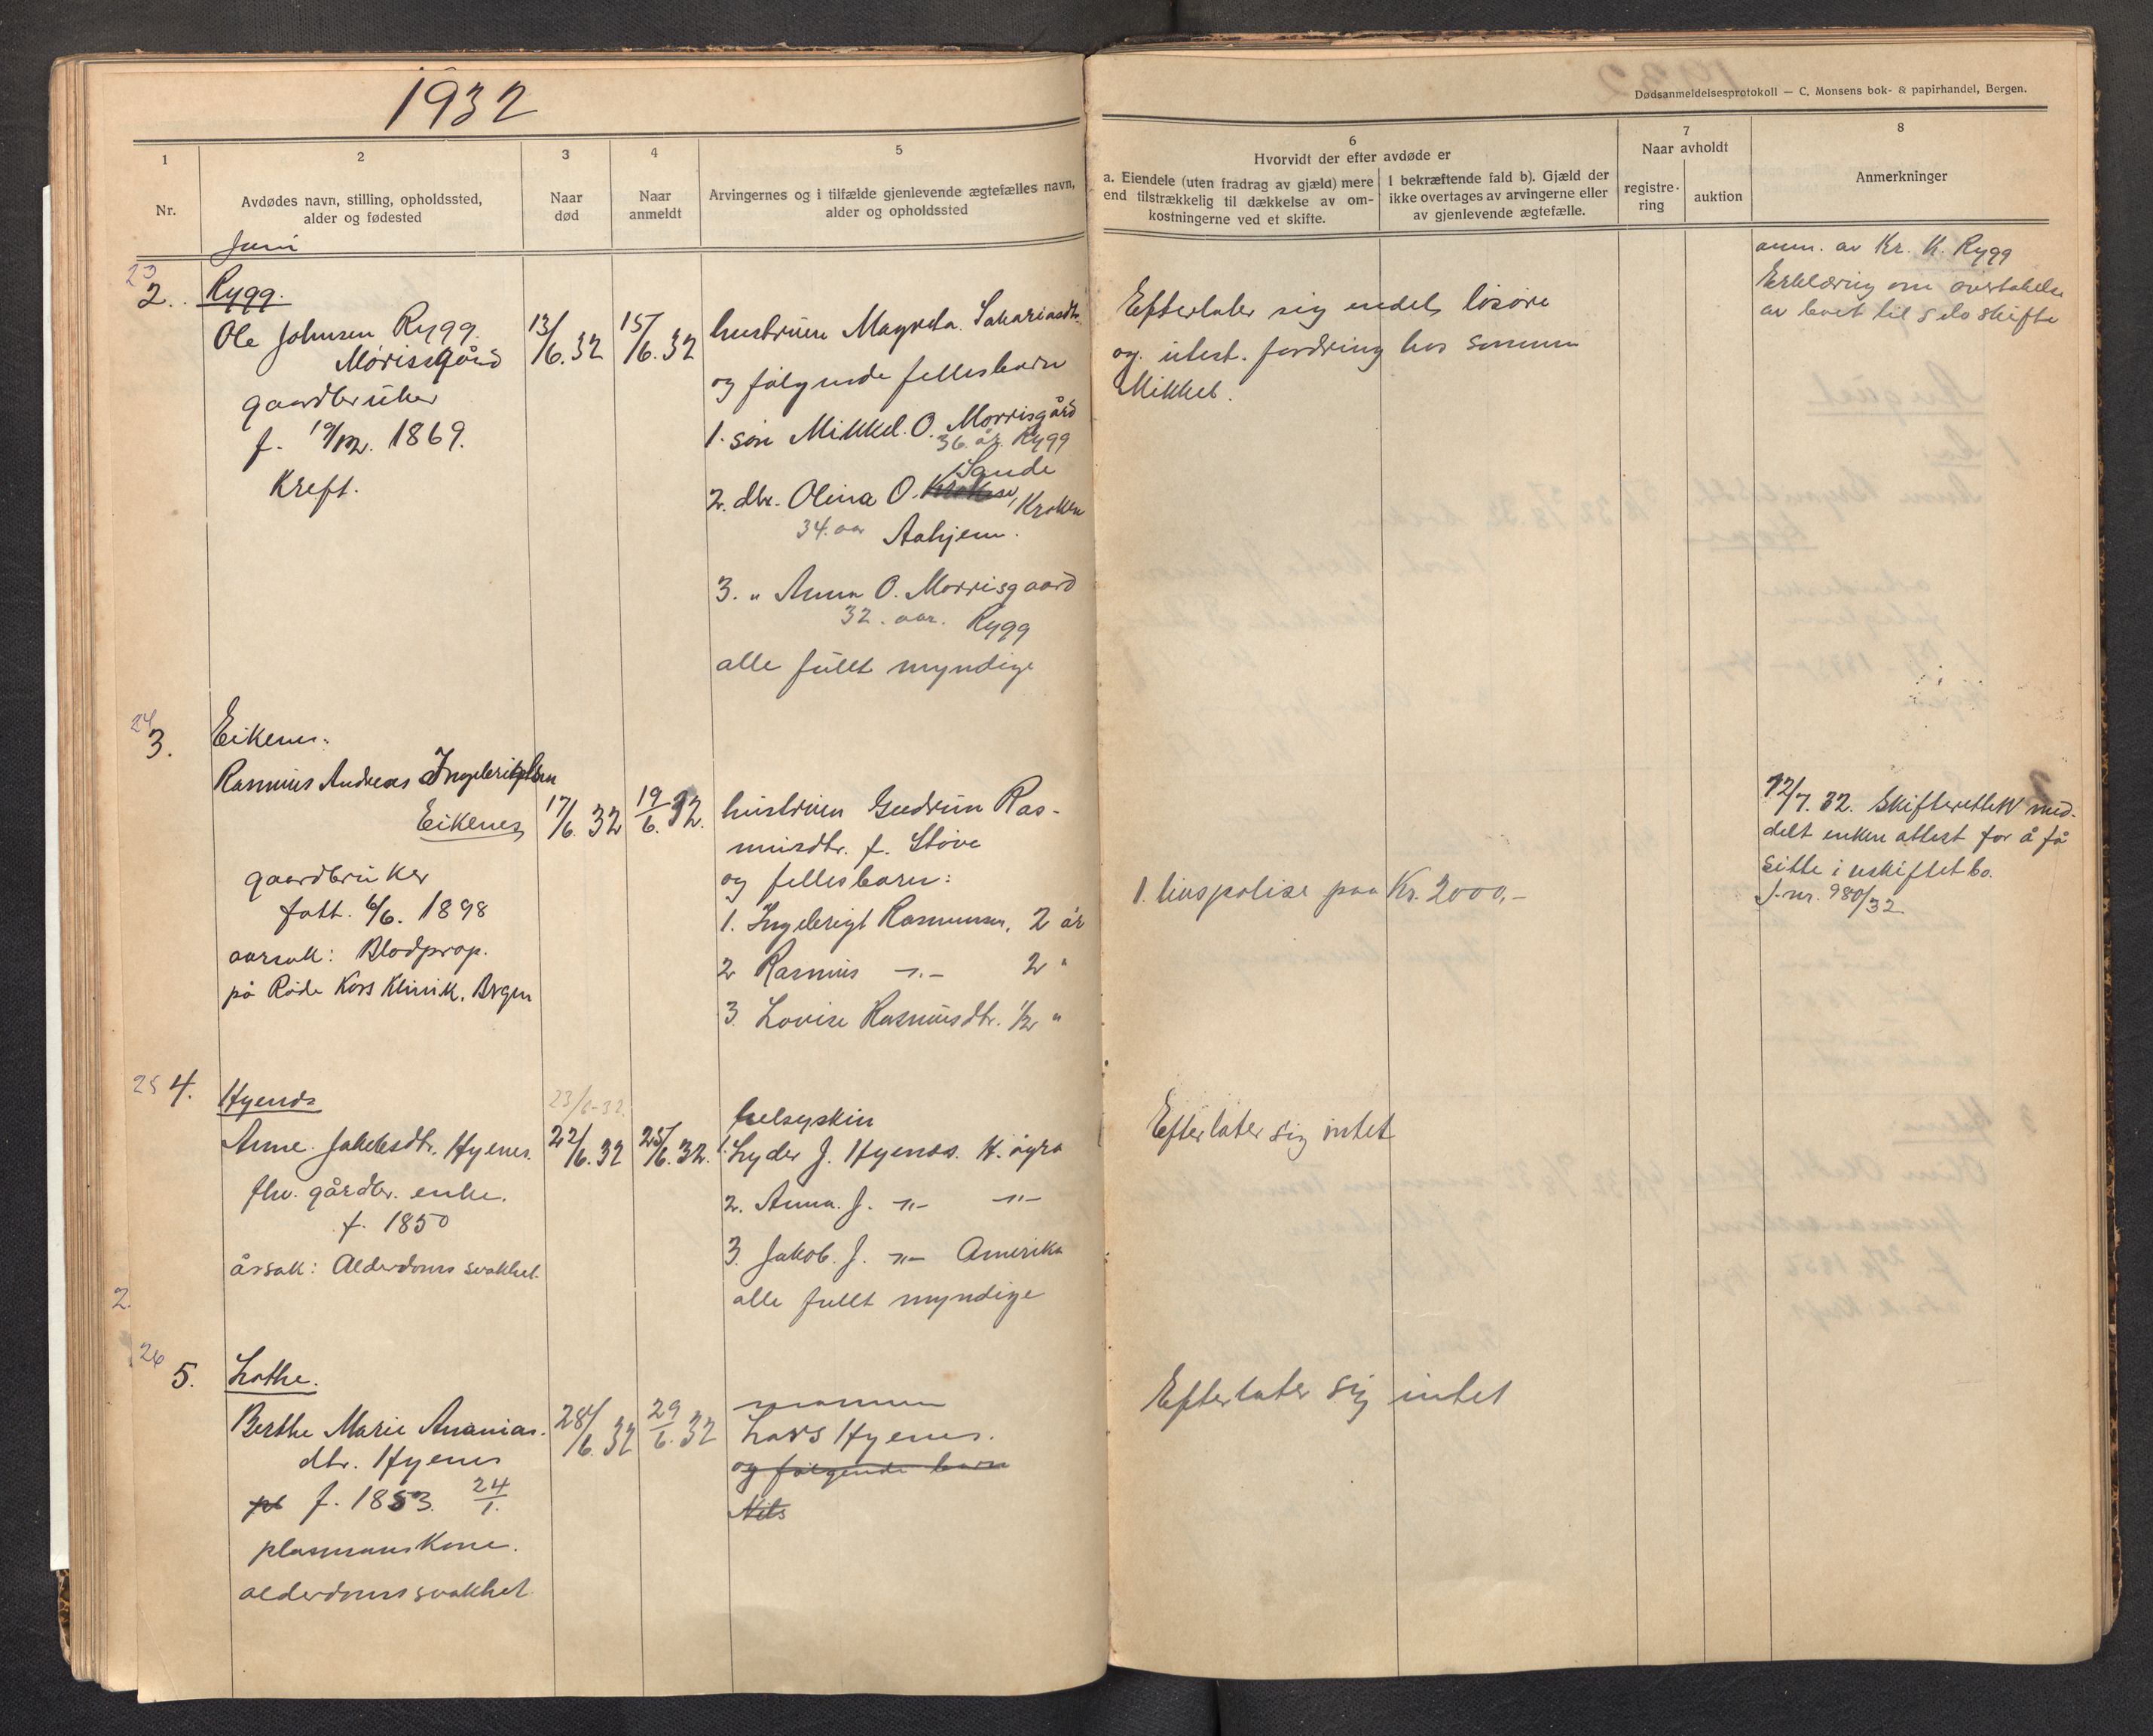 1932
Dødsanmeldelsesprotokoll — C. Monsens bok- & papirhandel, Bergen.
1
Nr.
2
Avdødes navn, stilling, opholdssted,
alder og fødested
3
Naar
død
4
Naar
anmeldt
5
Arvingernes og i tilfælde gjenlevende ægtefælles navn,
alder og opholdssted
6
Hvorvidt der efter avdøde er
a. Eiendele (uten fradrag av gjæld) mere
end tilstrækkelig til dækkelse av om-
kostningerne ved et skifte.
I bekræftende fald b). Gjæld der
ikke overtages av arvingerne eller
av gjenlevende ægtefælle.
7
Naar avholdt
registre-
ring
auktion
8
Anmerkninger
Juni
23
2.
Rygg.
Ole Johnsen Rygg.
Morisgård
gaardbruker
f. 19/12. 1869.
Kreft.
13/6. 32
15/6. 32
hustruen Magreta Sakariasdtr.
og følgende fellesbarn
1. søn Mikkel. O. Morrisgård
36. år. Rygg
Sande
2. dtr. Olina O. Kroken, Kroken
34. aar Aahjem.
3. " Anna O. Morrisgaard
32. aar. Rygg
alle fullt myndige
Efterlater sig endel løsøre
og utest. fordring hos sønnen
Mikkel.
anm. av Kr. K. Rygg
Erklæring om overtakelse
av boet til selvskifte
24
3.
Eikenes.
Rasmus Andreas Ingebrigtsen
Eikenes
gaardbruker
født. 6/6. 1898
aarsak: Blodprop.
på Røde Kors Klinik, Brgen
17/6. 32
19/6. 32.
hustruen Gudrun Ras-
musdtr. f. Støve
og fellesbarn:
1. Ingebrigt Rasmussen, 2 år
2 Rasmus -"- 2 "
3. Lovise Rasmusdtr. 1/2 "
1 livspolise paa Kr. 2000,-
12/7. 32. Skifteretten med-
delt enken attest for å få
sitte i uskiftet bo.
J. nr. 980/32
25
4.
Hyenes
Anne Jakobsdtr. Hyenes.
fhv. gårdbr. enke.
f. 1850
årsak: Alderdomssvakhet.
23/6-32.
22/6. 32
25/6. 32.
helsyskin
1. Lyder J. Hyenes. H. øyra
2. Anna. J. -"- -"-
3. Jakob. J. -"- Amerika
alle fullt myndige
Efterlater sig intet
2.
26
5.
Lothe.
Berthe Marie Ananias-
dtr. Hyenes
f. 1853. 24/1.
plasmannskone.
alderdomssvakhet
28/6. 32
29/6. 32
mannen
Lars Hyenes.
og følgende barn
Nils
Efterlater sig intet